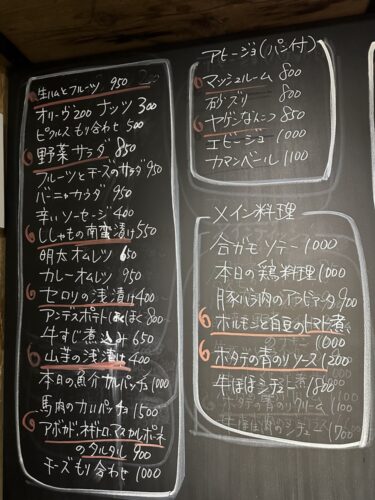 生ハムとフルーツ 950
オリーヴ200 ナッツ 300
ピクルスもり合わせ 500
野菜サラダ 850
フルーツとチーズのサラダ 950
バーニャカウダ 950
辛いソーセージ 400
ししゃもの南蛮漬け 550
明太オムレツ 650
カレーオムレツ 950
セロリの浅漬け 400
アンデスポテトほくほく 800
牛すじ煮込み 650
山芋の浅漬け 400
本日の魚介カルパッチョ 1000
馬肉のカルパッチョ 1500
アボカド、ネギトロ、マスカルポーネ
のタルタル 900
チーズもり合わせ 1000
アヒージョ(パン付)
マッシュルーム 800
砂ズリ 800
ヤゲンなんこつ 850
エビージョ 1000
カマンベール 1100
メイン料理
合がモソテー 1000
本日の鶏料理 1000
豚バラ肉のアラビアータ 900
ホルモンと白豆のトマト煮
ホタテの青のりソース 1200
牛ほほシチュー 1800